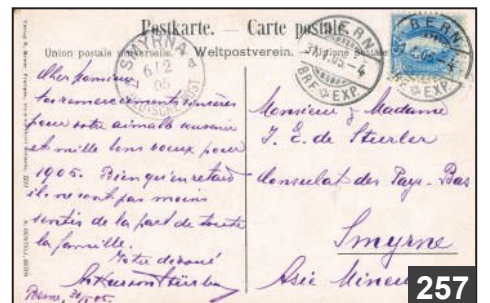 Postkarte. — Carte postale.
Union postale universelle. Weltpostverein. Unione postale
SMYRNA
6/2
05
a
DEUTSCHE POST
BERN
31.I.05.-4
BRF. EXP.
BERN
I.05.-4
BRF. EXP.
Cher Monsieur
tos remerciements sincères
pour votre aimable souvenir
et mille bons voeux pour
1905. Bien qu'en retard
ils ne sont pas moins
sentis de la part de toute
la famille.
Votre dévoué
Berne, 30/I 05.
Monsieur & Madame
J. E. de Sturler
Consulat des Pays-Bas
Smyrne
Asie Mineu
257